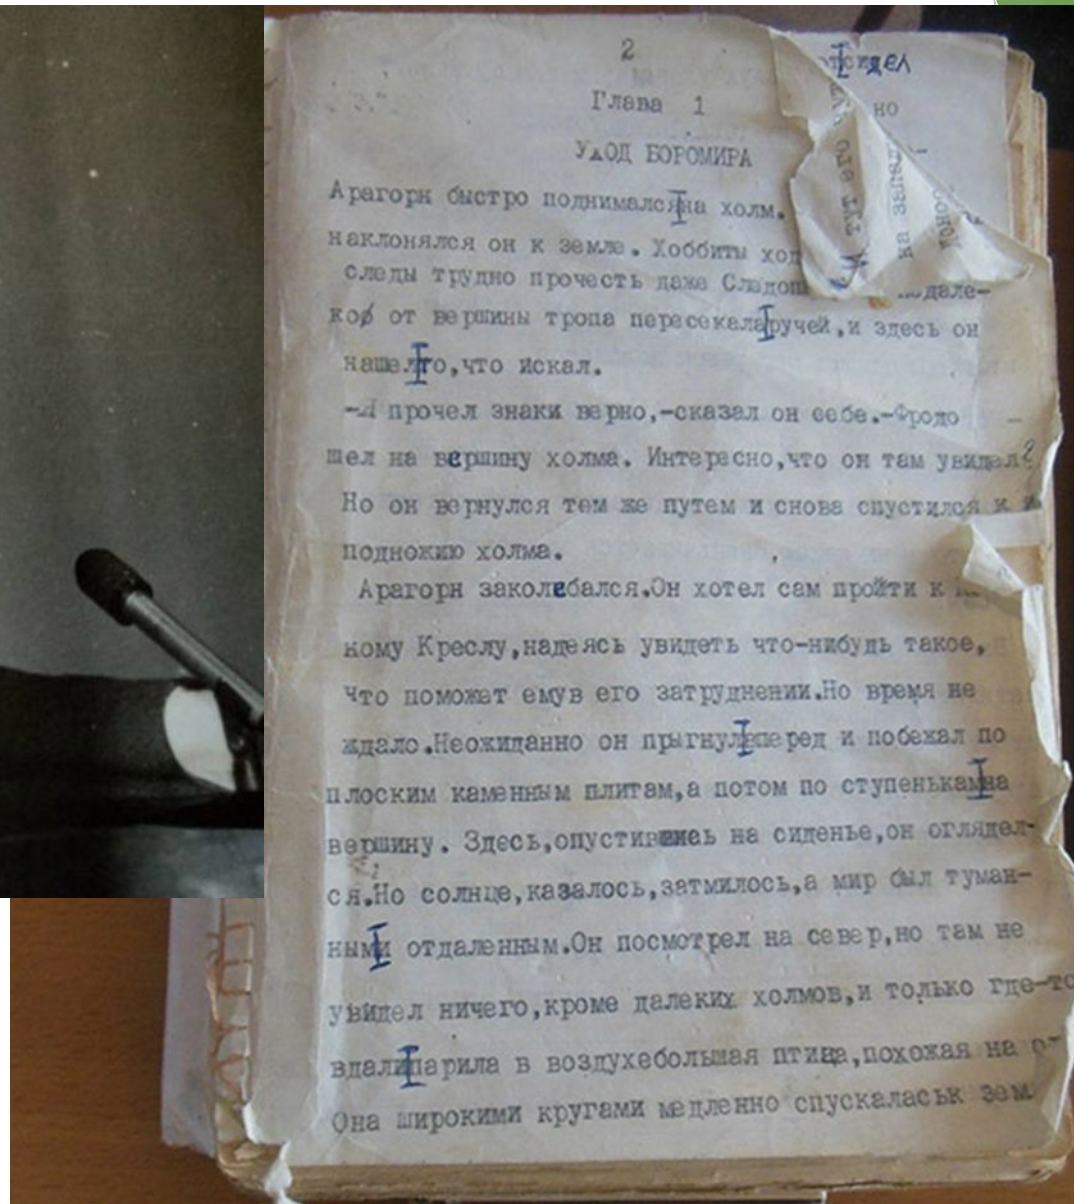 2
Глава 1
УХОД БОРОМИРА
отсидел
но
тут его
на запад
Арагорн быстро поднимался на холм.
наклонялся он к земле. Хоббиты ход
следы трудно прочесть даже Следоп подале-
ко от вершины тропа пересекала ручей,и здесь он
нашел то,что искал.
-Я прочел знаки верно,-сказал он себе.-Фродо
шел на вершину холма. Интересно,что он там увидел?
Но он вернулся тем же путем и снова спустился к
подножию холма.
Арагорн заколебался.Он хотел сам пройти к
кому Креслу,надеясь увидеть что-нибудь такое,
что поможет емув его затруднении.Но время не
ждало.Неожиданно он прыгнул вперед и побежал по
плоским каменным плитам,а потом по ступенькам на
вершину. Здесь,опустившись на сиденье,он оглядел-
ся.Но солнце,казалось,затмилось,а мир был туман-
ным и отдаленным.Он посмотрел на север,но там не
увидел ничего,кроме далеких холмов,и только где-то
вдали парила в воздухебольшая птица,похожая на
Она широкими кругами медленно спускаласьк зем